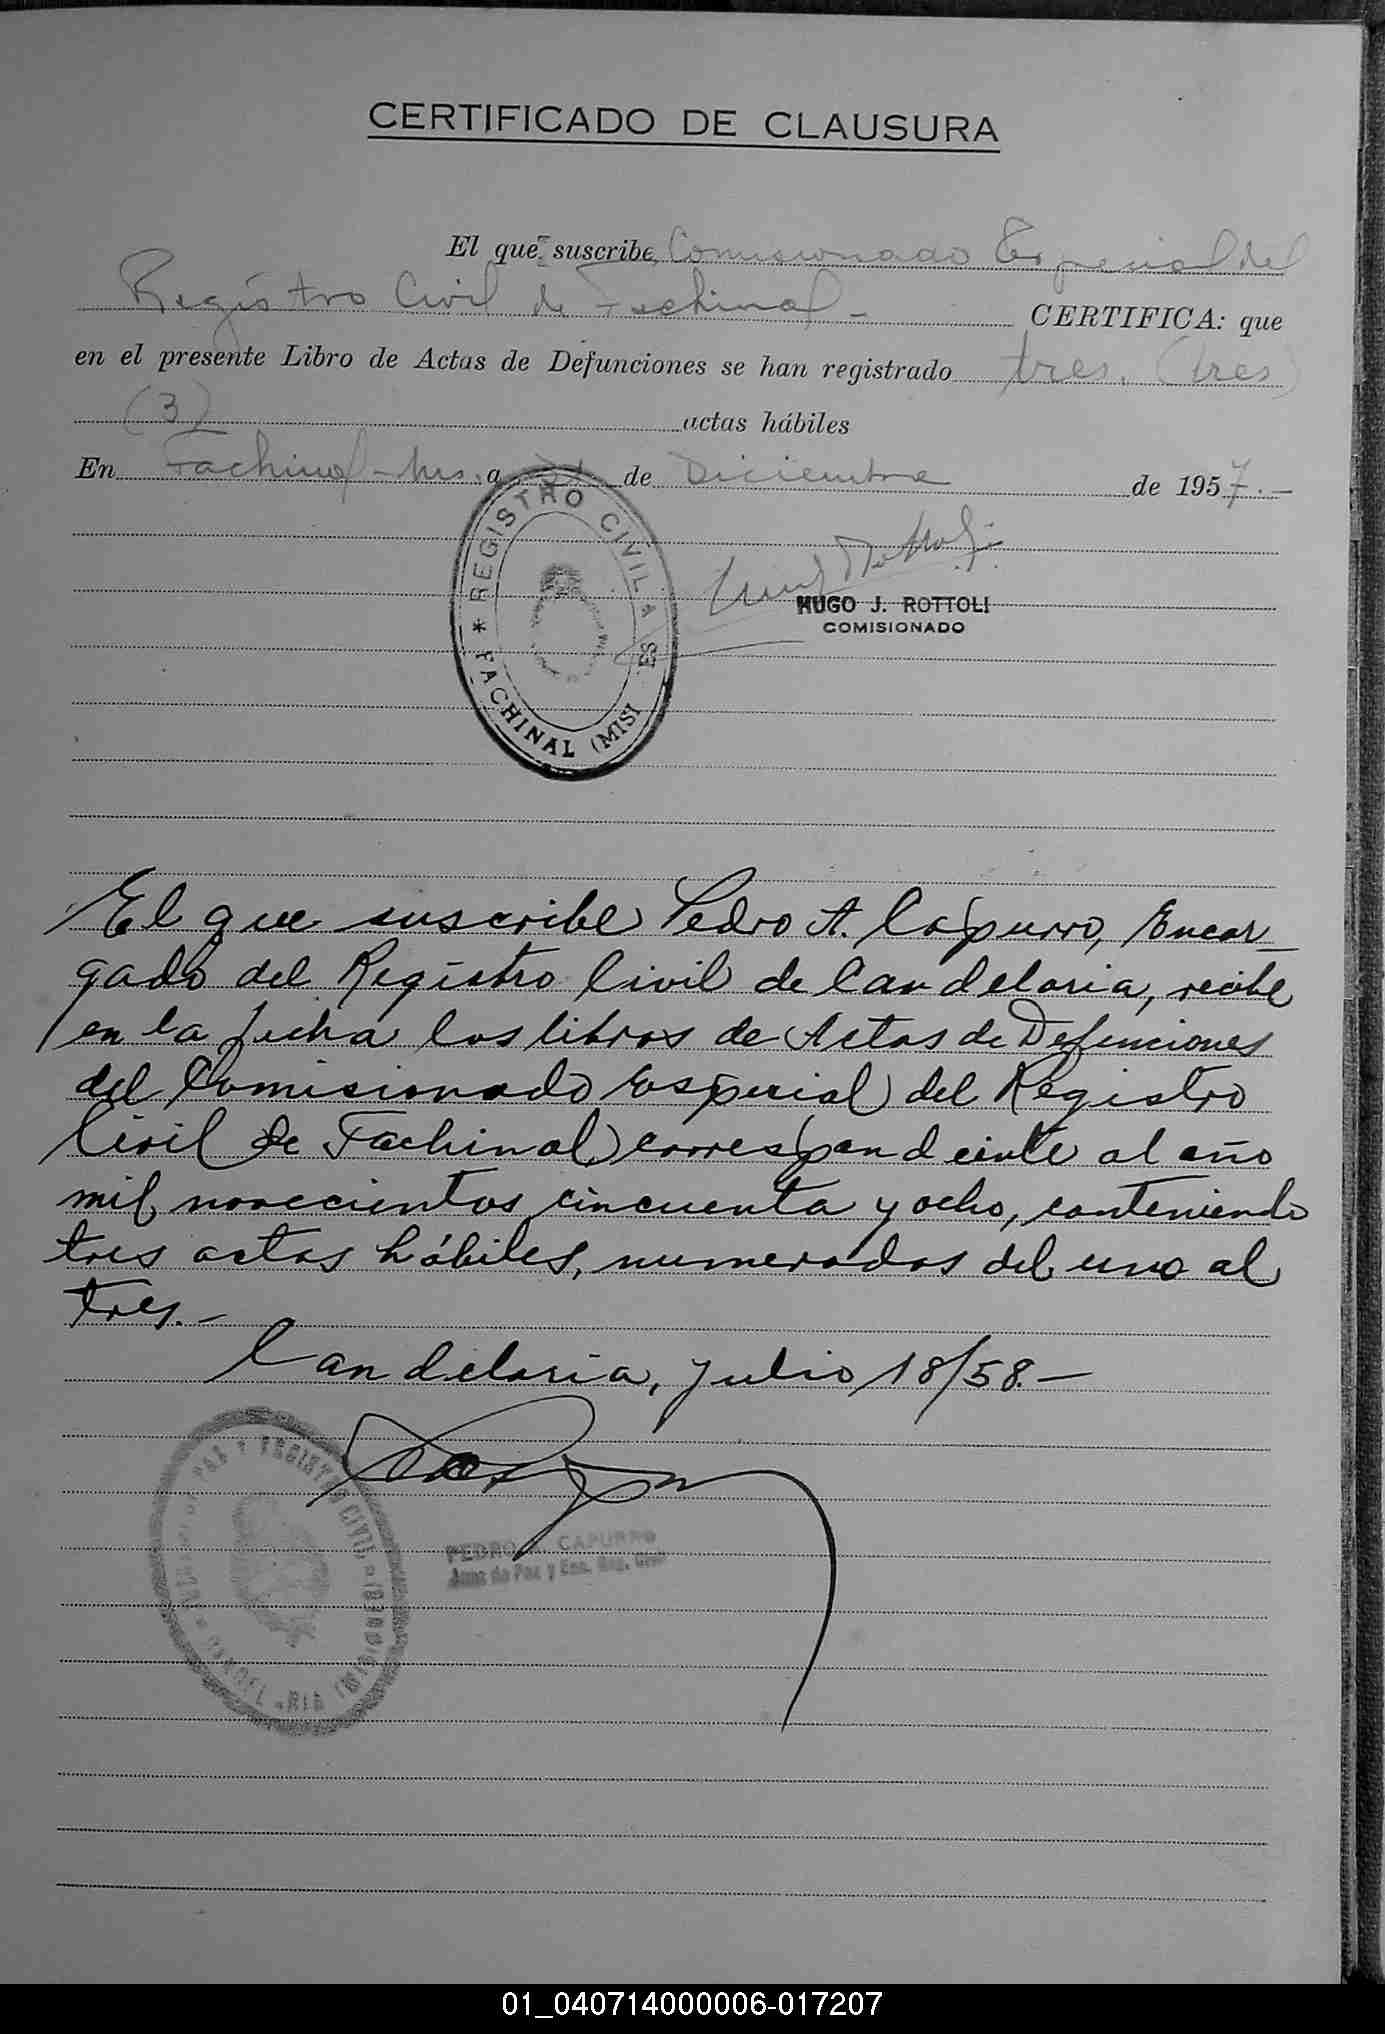 CERTIFICADO DE CLAUSURA
El que suscribe, Comisionado Especial del
Registro Civil de Fachinal - CERTIFICA: que
en el presente Libro de Actas de Defunciones se han registrado tres. (tres)
(3) actas hábiles
En Fachinal - Ms. a 31 de Diciembre de 1957.-
* REGISTRO CIVIL A ES
FACHINAL (MISI
HUGO J. ROTTOLI
COMISIONADO
El que suscribe Pedro A. Capurro, Encar-
gado del Registro Civil de Candelaria, recibe
en la fecha los libros de Actas de Defunciones
del Comisionado Especial del Registro
Civil de Fachinal correspondeinte al año
mil novecientos cincuenta y ocho, conteniendo
tres actas hábiles, numeradas del uno al
tres.-
Candelaria, julio 18/58.-
PAZ Y REGISTRO CIVIL
PEDRO A. CAPURRO
Juez de Paz y Enc. Reg. Civil
01_040714000006-017207